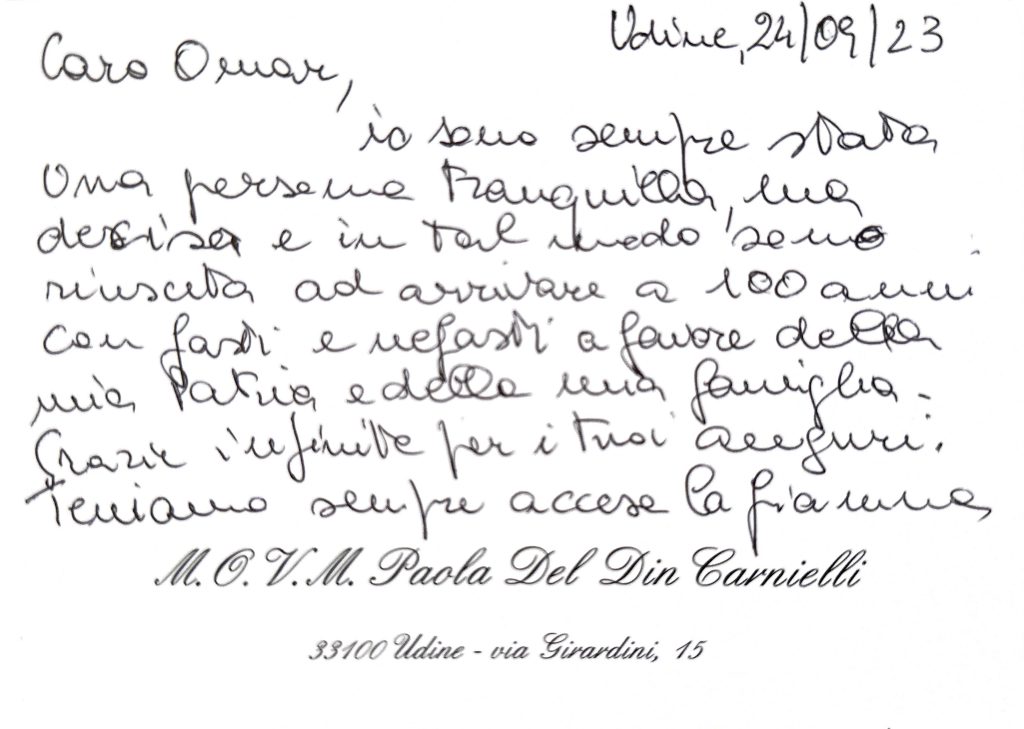 Udine, 24/09/23
Caro Omar,
io sono sempre stata
una persona tranquilla, ma
decisa e in tal modo sono
riuscita ad arrivare a 100 anni
con fasti e nefasti a favore della
mia Patria e della mia famiglia.
Grazie infinite per i tuoi auguri.
Teniamo sempre accesa la fiamma
M. O. V. M. Paola Del Din Carnielli
33100 Udine - via Girardini, 15